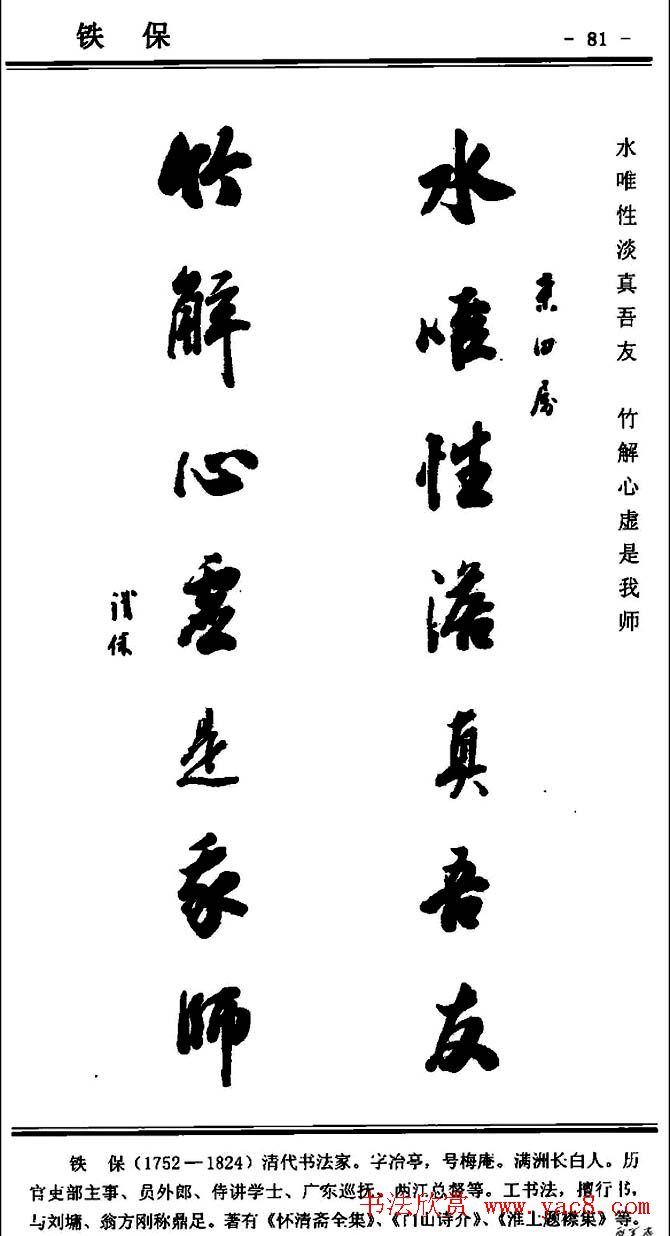 铁 保
- 81 -
水唯性淡真吾友 竹解心虚是我师
水唯性澹真吾友
竹解心虚是我师
铁保
铁 保(1752—1824)清代书法家。字冶亭,号梅庵。满洲长白人。历
官吏部主事、员外郎、侍讲学士、广东巡抚、两江总督等。工书法,擅行书,
与刘墉、翁方刚称鼎足。著有《怀清斋全集》、《白山诗介》、《淮上题襟集》等。
书法欣赏 www.yac8.com